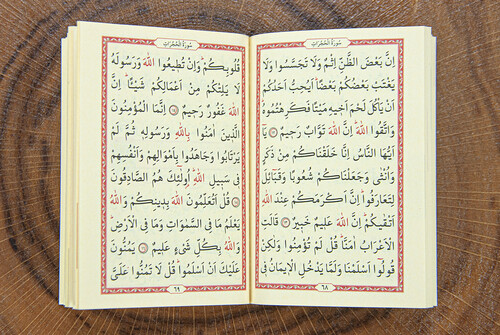 سُورَةُ الْحُجُرَاتِ
اِنَّ بَعْضَ الظَّنِّ اِثْمٌ وَلَا تَجَسَّسُوا وَلَا
يَغْتَبْ بَعْضُكُمْ بَعْضًا اَيُحِبُّ اَحَدُكُمْ
اَنْ يَأْكُلَ لَحْمَ اَخِيهِ مَيْتًا فَكَرِهْتُمُوهُ
وَاتَّقُوا اللّٰهَ اِنَّ اللّٰهَ تَوَّابٌ رَحِيمٌ ﴿١٢﴾ يَٓا
اَيُّهَا النَّاسُ اِنَّا خَلَقْنَاكُمْ مِنْ ذَكَرٍ
وَاُنْثٰى وَجَعَلْنَاكُمْ شُعُوبًا وَقَبَٓائِلَ
لِتَعَارَفُوا اِنَّ اَكْرَمَكُمْ عِنْدَ اللّٰهِ
اَتْقٰيكُمْ اِنَّ اللّٰهَ عَلِيمٌ خَبِيرٌ ﴿١٣﴾ قَالَتِ
الْاَعْرَابُ اٰمَنَّا قُلْ لَمْ تُؤْمِنُوا وَلٰكِنْ
قُولُٓوا اَسْلَمْنَا وَلَمَّا يَدْخُلِ الْاِيمَانُ فِى
٦٨
سُورَةُ الْحُجُرَاتِ
قُلُوبِكُمْ وَاِنْ تُطِيعُوا اللّٰهَ وَرَسُولَهُ
لَا يَلِتْكُمْ مِنْ اَعْمَالِكُمْ شَيْـًٔا اِنَّ
اللّٰهَ غَفُورٌ رَحِيمٌ ﴿١٤﴾ اِنَّمَا الْمُؤْمِنُونَ
الَّذِينَ اٰمَنُوا بِاللّٰهِ وَرَسُولِهِ ثُمَّ لَمْ
يَرْتَابُوا وَجَاهَدُوا بِاَمْوَالِهِمْ وَاَنْفُسِهِمْ
فِى سَبِيلِ اللّٰهِ اُولٰٓئِكَ هُمُ الصَّادِقُونَ
﴿١٥﴾ قُلْ اَتُعَلِّمُونَ اللّٰهَ بِدِينِكُمْ وَاللّٰهُ
يَعْلَمُ مَا فِى السَّمٰوَاتِ وَمَا فِى الْاَرْضِ
وَاللّٰهُ بِكُلِّ شَىْءٍ عَلِيمٌ ﴿١٦﴾ يَمُنُّونَ
عَلَيْكَ اَنْ اَسْلَمُوا قُلْ لَا تَمُنُّوا عَلَىَّ
٦٩